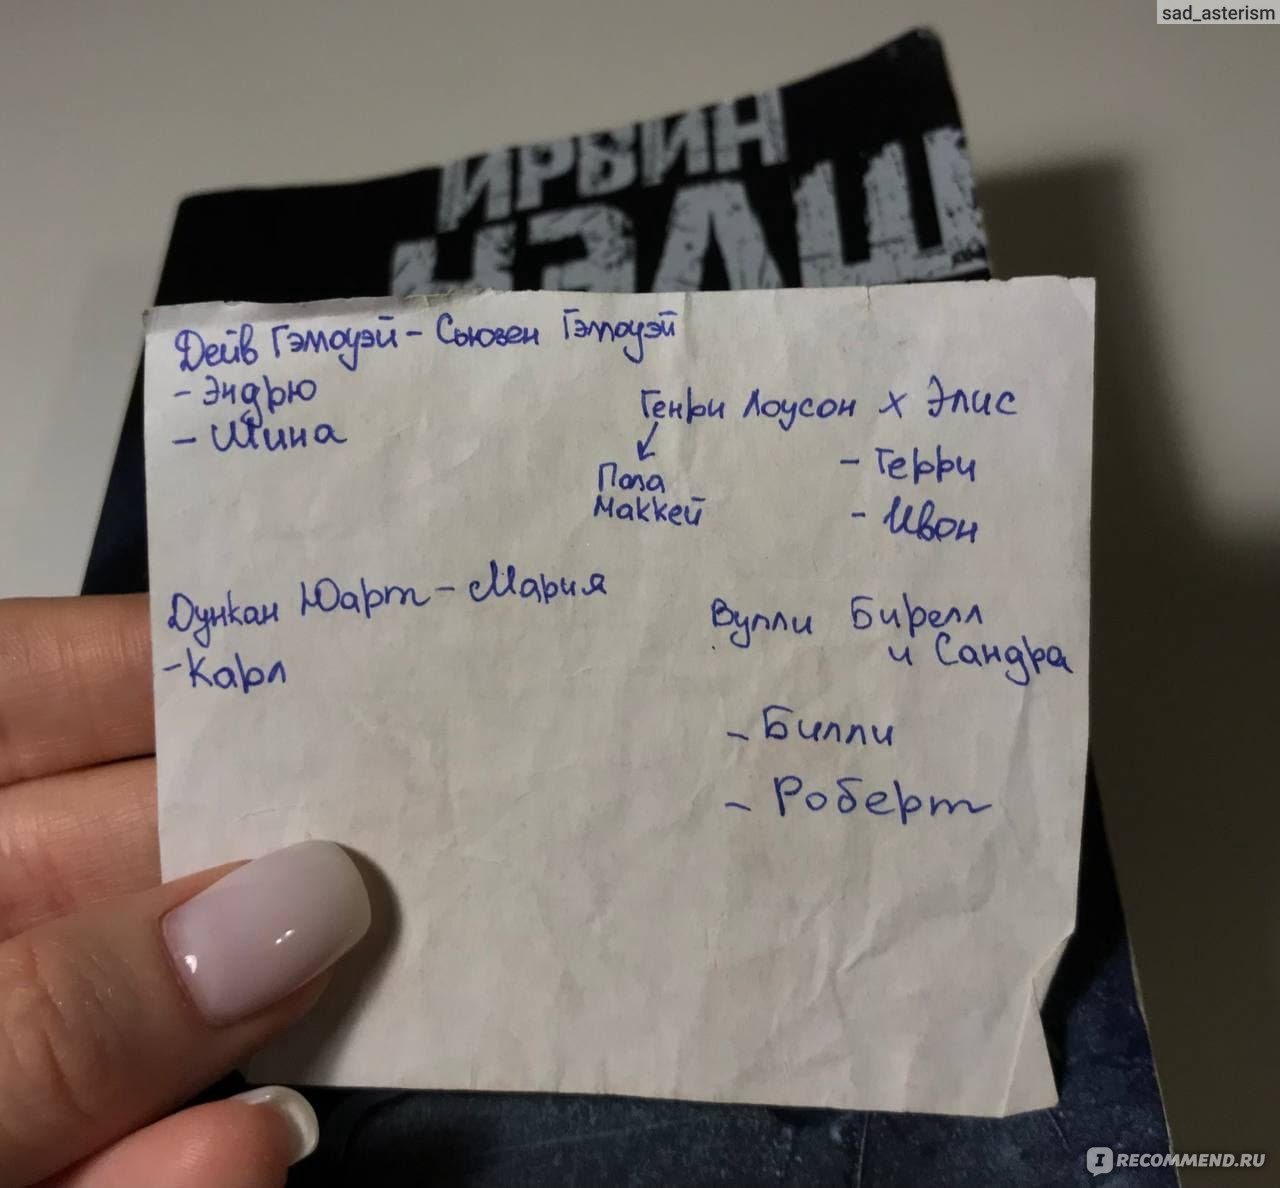 sad_asterism
ИРВИН
УЭЛШ
Дейв Гэлоуэй - Сьюзен Гэлоуэй
- Эндрю
- Шина
Генри Лоусон х Элис
- Терри
- Ивон
Пола
Маккей
Дункан Юарт - Мария
- Карл
Вулли Бирелл
и Сандра
- Билли
- Роберт
IRECOMMEND.RU